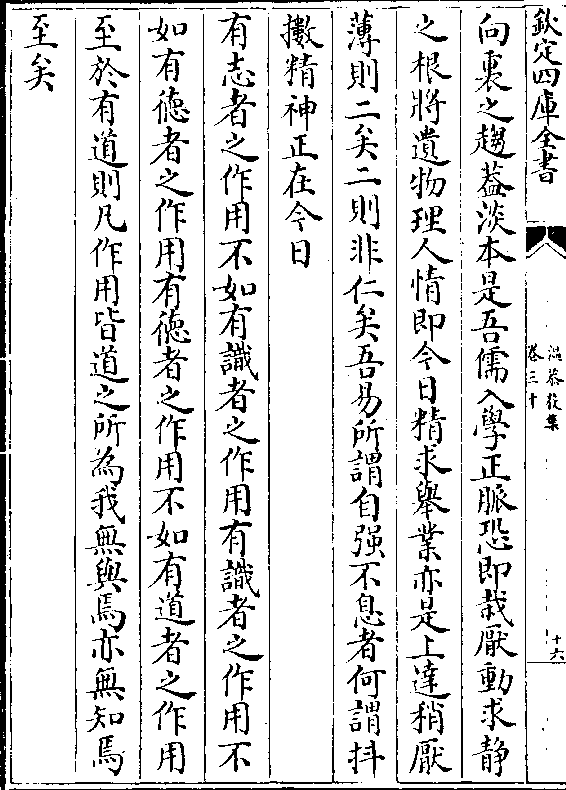 欽定四庫全書
溫恭毅集
卷三十
十六
向裏之趨葢淡本是吾儒入學正脈恐即栽厭動求靜
之根將遺物理人情即今日精求舉業亦是上達稍厭
薄則二矣二則非仁矣吾易所謂自强不息者何謂抖
擻精神正在今日
有志者之作用不如有識者之作用有識者之作用不
如有德者之作用有德者之作用不如有道者之作用
至於有道則凡作用皆道之所為我無與焉亦無知焉
至矣